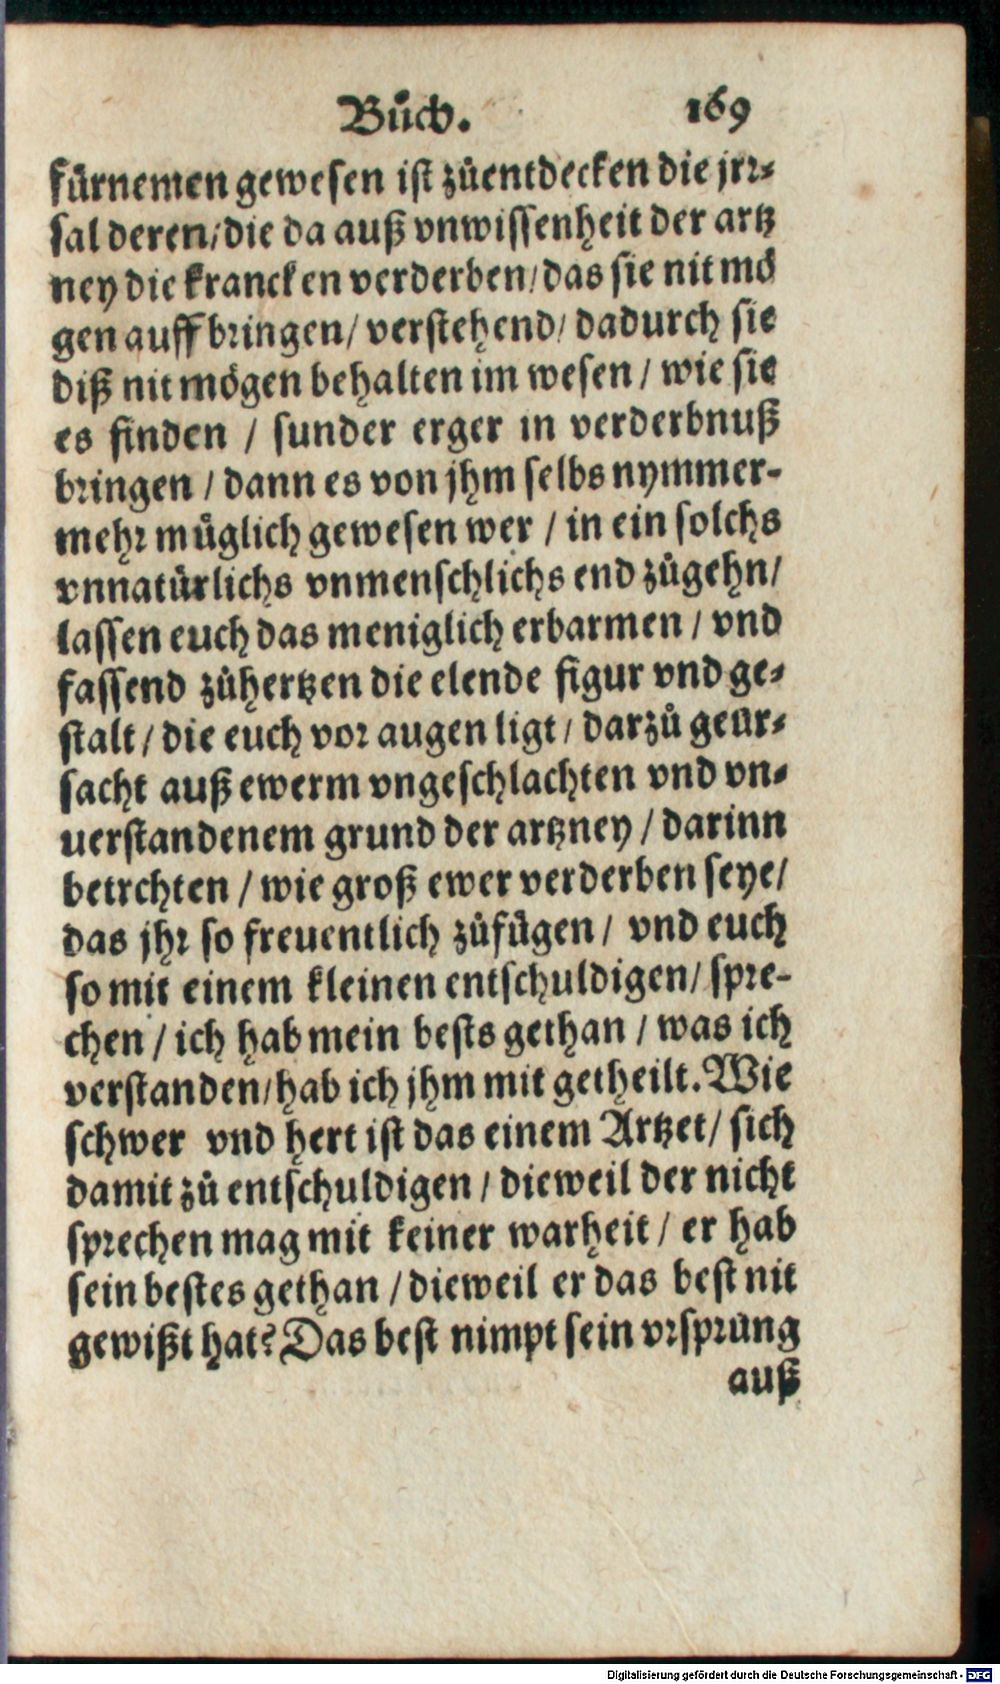 Bůch. 169
fürnemen gewesen ist zůentdecken die jrr⸗
sal deren/ die da auß vnwissenheit der artz
ney die krancken verderben/ das sie nit mö
gen auff bringen/ verstehend/ dadurch sie
diß nit mögen behalten im wesen / wie sie
es finden / sunder erger in verderbnuß
bringen / dann es von jhm selbs nymmer-
mehr müglich gewesen wer / in ein solchs
vnnatürlichs vnmenschlichs end zůgehn/
lassen euch das meniglich erbarmen / vnd
fassend zůhertzen die elende figur vnd ge⸗
stalt / die euch vor augen ligt / darzů geur⸗
sacht auß ewerm vngeschlachten vnd vn⸗
uerstandenem grund der artzney / darinn
betrchten / wie groß ewer verderben seye/
das jhr so freuentlich zůfügen / vnd euch
so mit einem kleinen entschuldigen/ spre-
chen / ich hab mein bests gethan / was ich
verstanden/ hab ich jhm mit getheilt. Wie
schwer vnd hert ist das einem Artzet/ sich
damit zů entschuldigen / dieweil der nicht
sprechen mag mit keiner warheit / er hab
sein bestes gethan / dieweil er das best nit
gewißt hat? Das best nimpt sein vrsprung
auß
Digitalisierung gefördert durch die Deutsche Forschungsgemeinschaft - DFG